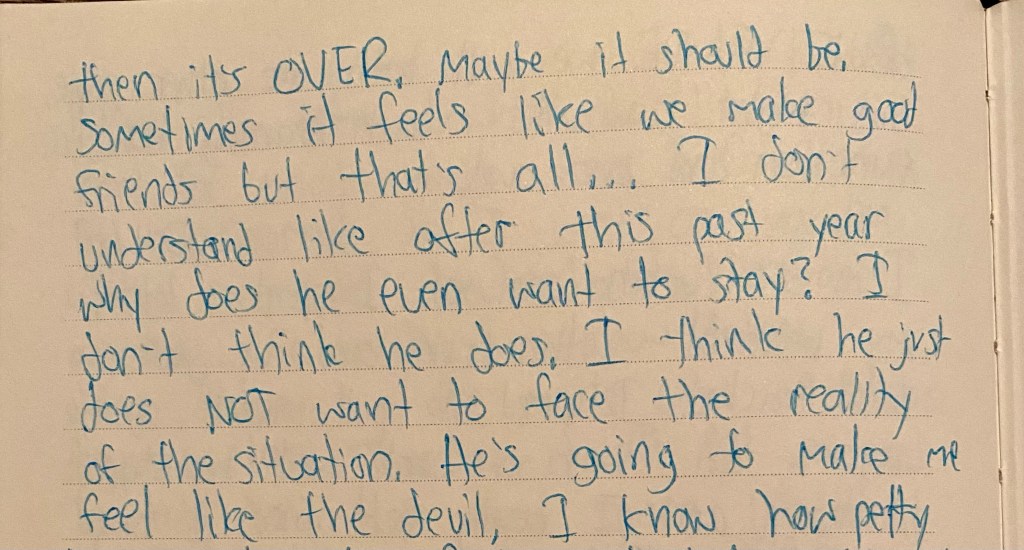 then it's OVER. Maybe it should be.
sometimes it feels like we make good
friends but that's all... I don't
understand like after this past year
why does he even want to stay? I
don't think he does. I think he just
does NOT want to face the reality
of the situation. He's going to make me
feel like the devil, I know how petty